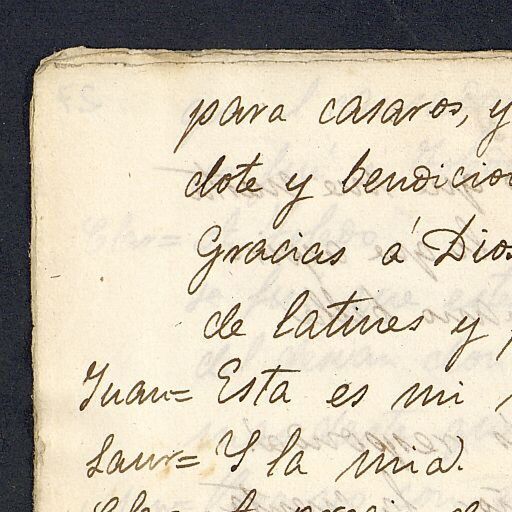 para casaros, y
dote y bendicion
Gracias á Dios
de latines y
Juan= Esta es mi
Laur= Y la mia.